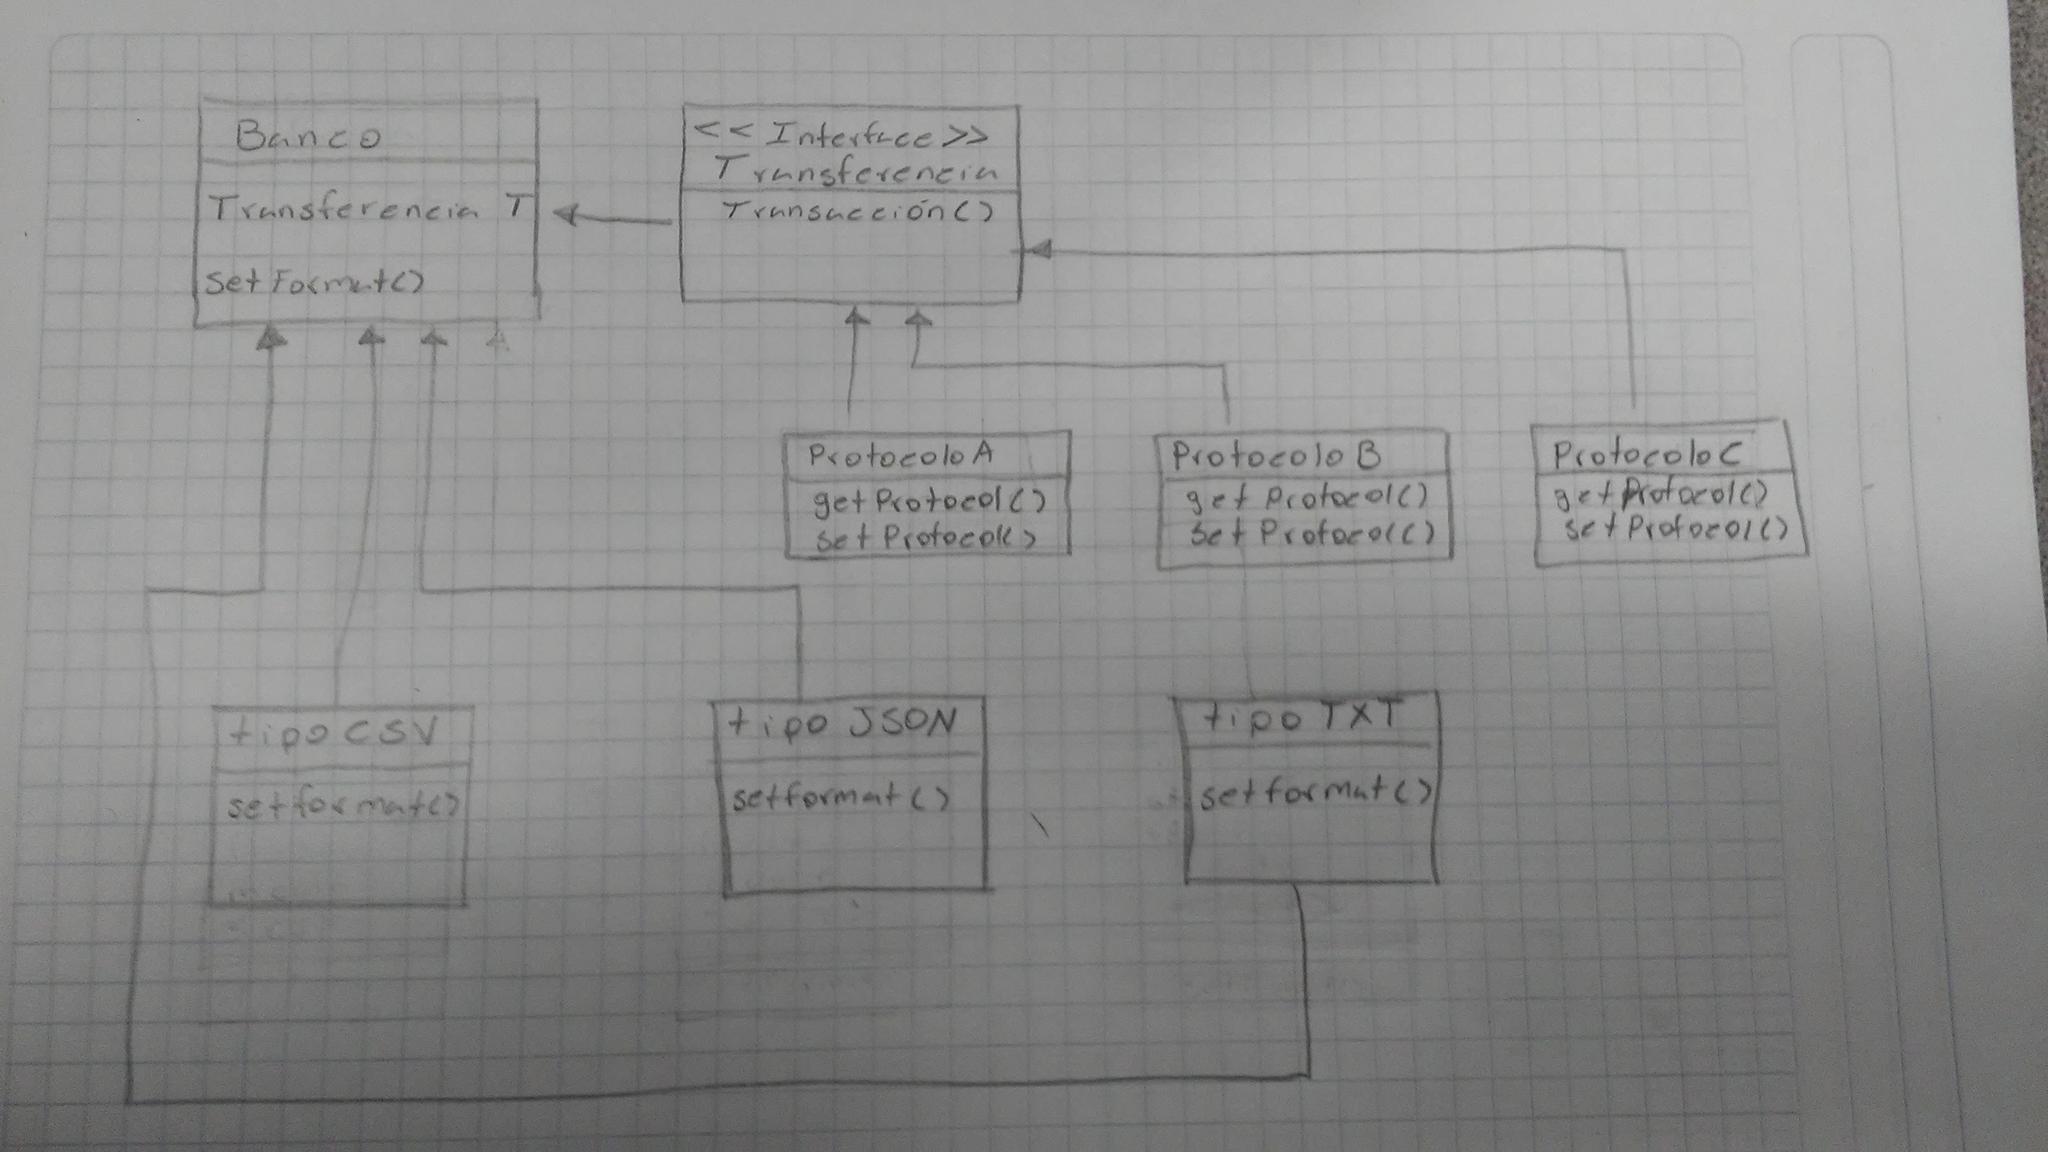 Banco
Transferencia T
setFormat()
<<Interface>>
Transferencia
Transacción()
Protocolo A
getProtocol()
setProtocol()
Protocolo B
getProtocol()
setProtocol()
Protocolo C
getProtocol()
setProtocol()
tipo CSV
setformat()
tipo JSON
setformat()
tipo TXT
setformat()